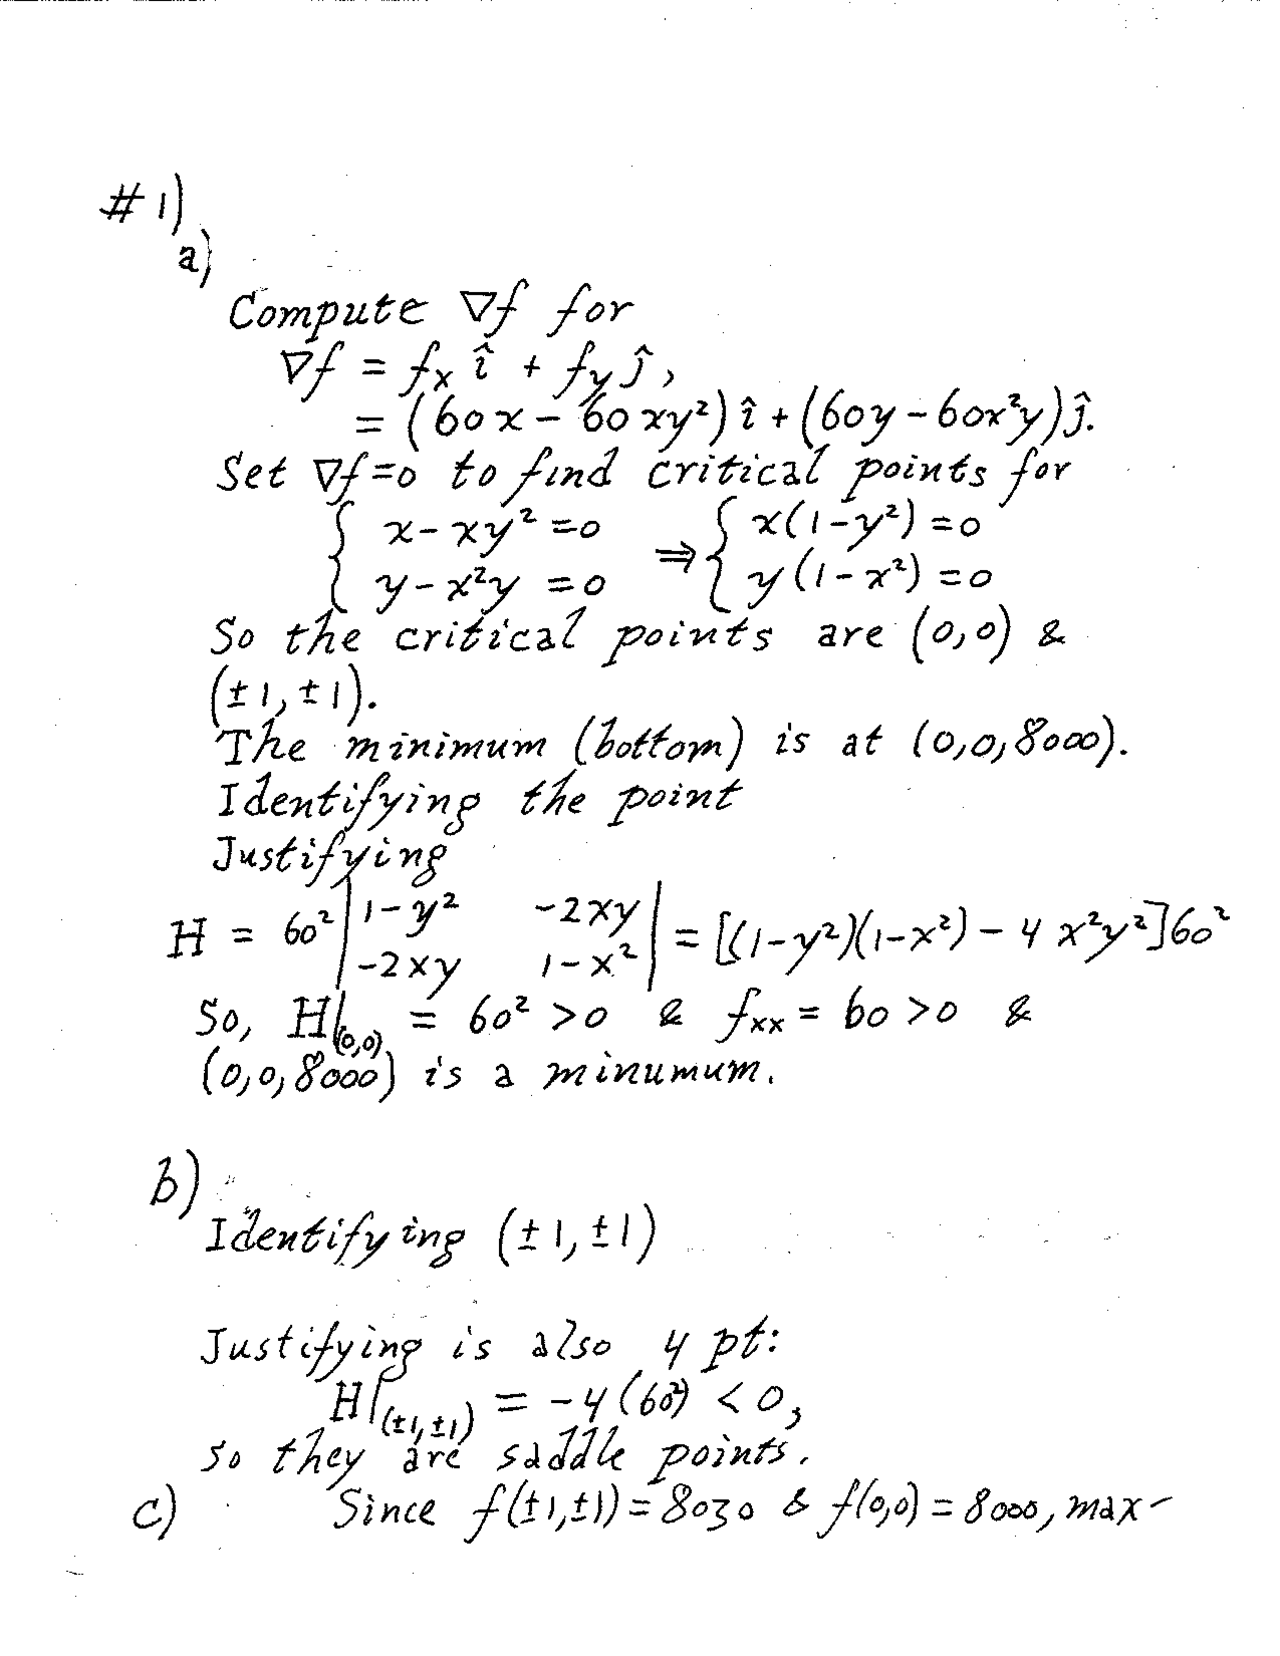 #1)
a)
Compute ∇f for
∇f = fₓ î + f_y ĵ,
= (60x - 60xy²) î + (60y - 60x²y) ĵ.
Set ∇f=0 to find critical points for
{ x - xy² = 0 ⇒ { x(1-y²) = 0
{ y - x²y = 0 { y(1-x²) = 0
So the critical points are (0,0) &
(±1, ±1).
The minimum (bottom) is at (0,0,8000).
Identifying the point
Justifying
H = 60² | 1-y² -2xy | = [(1-y²)(1-x²) - 4x²y²]60²
| -2xy 1-x² |
So, H|(0,0) = 60² > 0 & fₓₓ = 60 > 0 &
(0,0,8000) is a minumum.
b)
Identifying (±1, ±1)
Justifying is also 4 pt:
H|(±1,±1) = -4(60²) < 0,
so they are saddle points.
c) Since f(±1,±1)) = 8030 & f(0,0) = 8000, max-